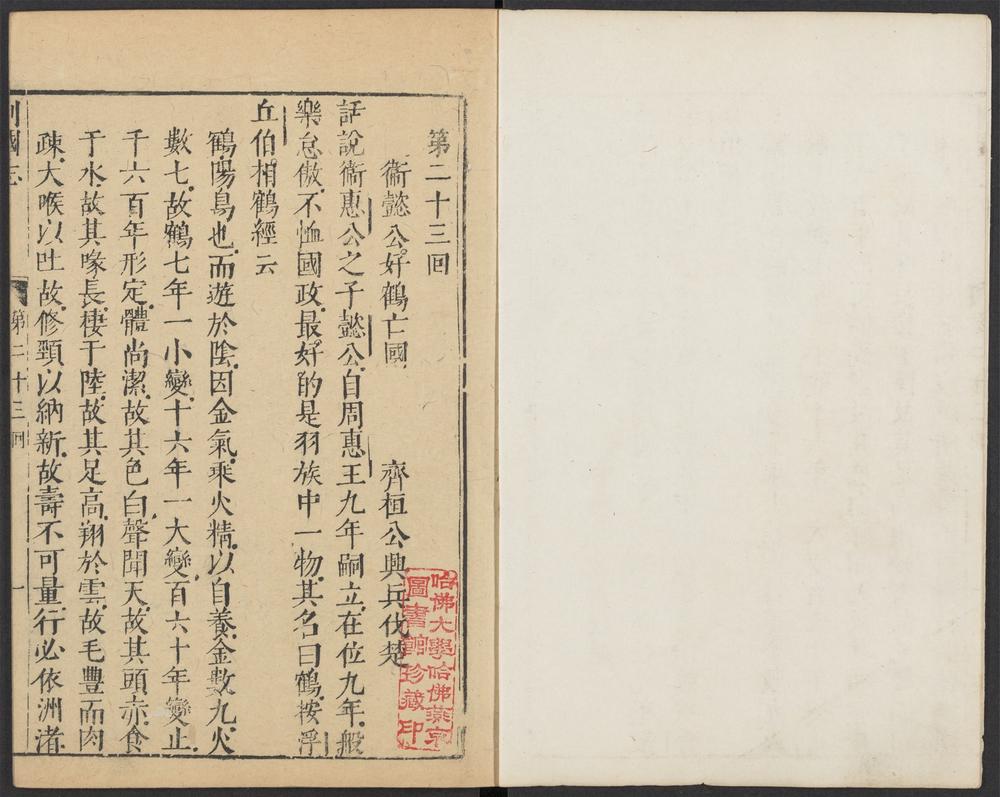 第二十三回
衞懿公好鶴亡國　齊桓公興兵伐楚
話說衞惠公之子懿公自周惠王九年嗣立在位九年般
樂怠傲不恤國政最好的是羽族中一物其名曰鶴按浮
丘伯相鶴經云
鶴陽鳥也而遊於陰因金氣乘火精以自養金數九火
數七故鶴七年一小變十六年一大變百六十年變止
千六百年形定體尚潔故其色白聲聞天故其頭赤食
于水故其喙長棲于陸故其足高翔於雲故毛豐而肉
疎大喉以吐故修頸以納新故壽不可量行必依洲渚
列國志　第二十三回　一
哈佛大學哈佛燕京
圖書館珍藏印